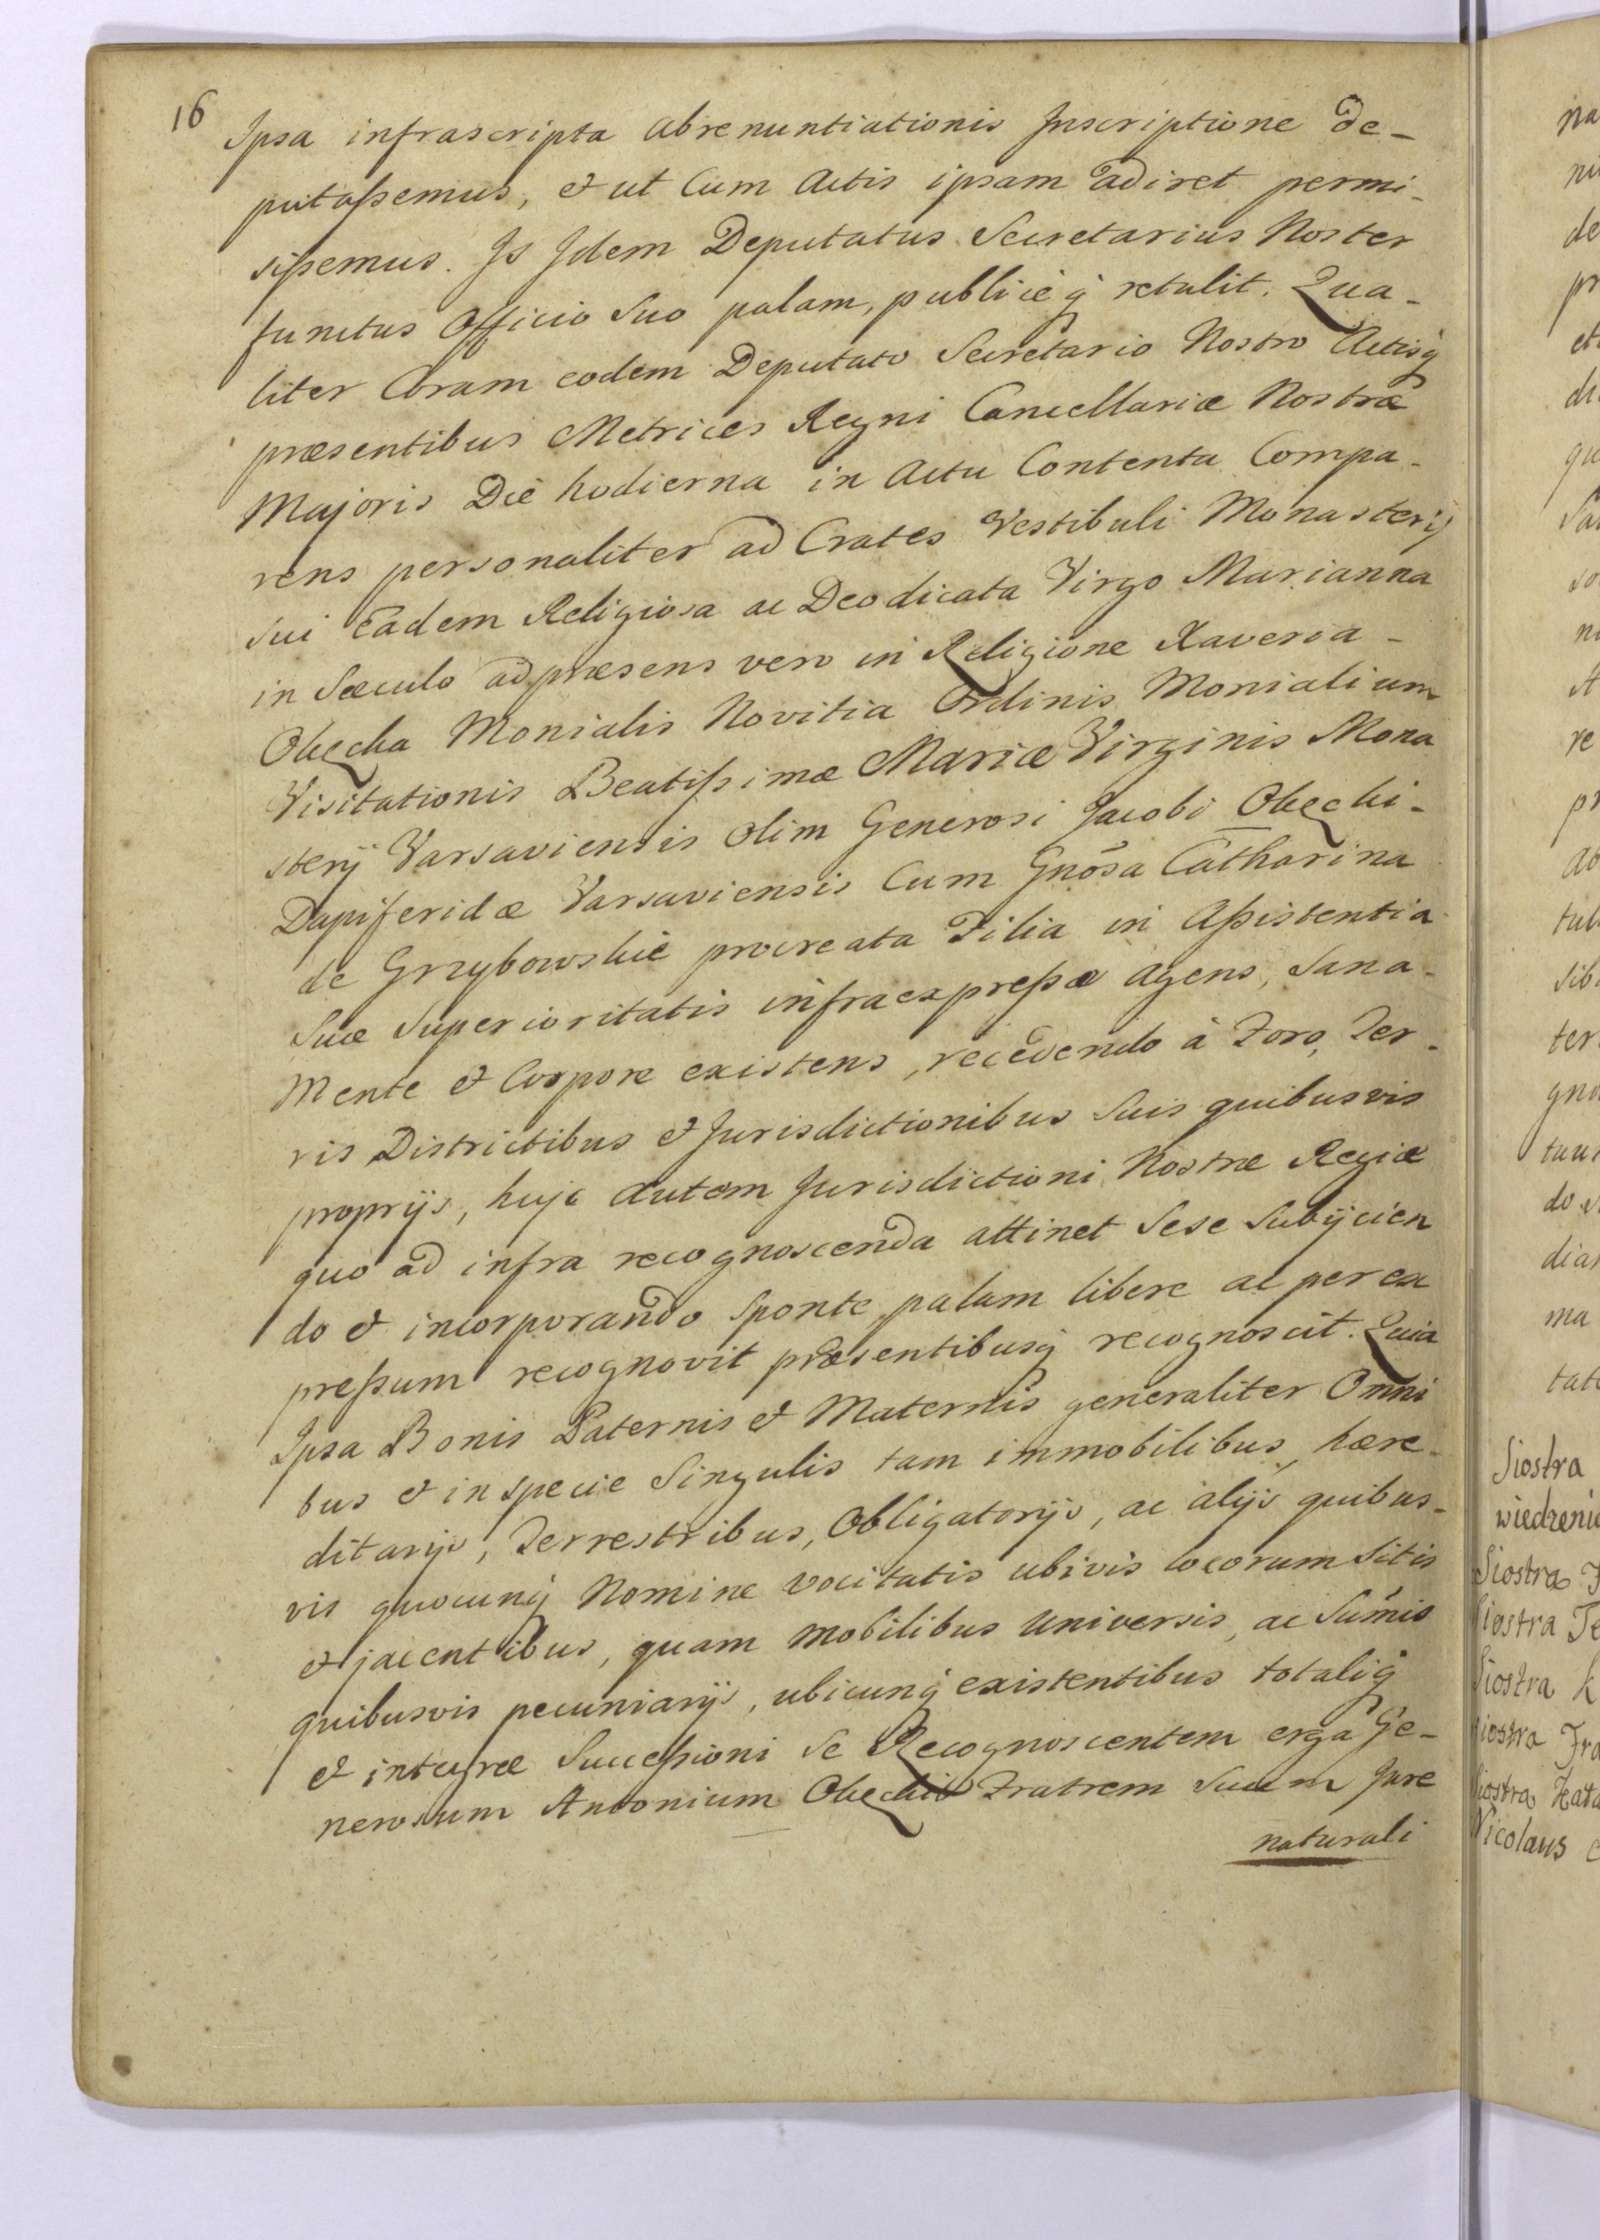 16
Ipsa infrascripta abrenuntiationis Inscriptione de-
putassemus, & ut Cum Actis ipsam adiret permi-
sissemus. Is Idem Deputatus Secretarius Noster
functus Officio Suo palam, publicèq́ retulit. Qua-
liter Coram eodem Deputato Secretario Nostro Actisq́
præsentibus Metrices Regni Cancellariæ Nostræ
Majoris Diè hodierna in Actu Contenta Compa-
rens personaliter ad Crates Vestibuli Monasterij
sui Eadem Religiosa ac Deodicata Virgo Marianna
in Sæculo ad præsens vero in Religione Xaveria-
Okęcka Monialis Novitia Ordinis Monialium
Visitationis Beatissimæ Mariæ Virginis Mona
sterij Varsaviensis olim Generosi Jacobi Okęcki-
Dapiferidæ Varsaviensis Cum Gnosa Catharina
de Grzybowskie procreata Filia in Assistentia
Suæ Superioritatis infraexpressæ agens, Sana-
Mente & Corpore existens, recedendo à Foro, Ter-
ris Districtibus & Jurisdictionibus Suis quibusvis
proprijs, huic autem Jurisdictioni Nostræ Regiæ
quo ad infra recognoscenda attinet Sese Subijcien
do & incorporando Sponte, palam libere ac per ex
pressum recognovit præsentibusq́ recognoscit. Quia
Ipsa Bonis Paternis & Maternis generaliter Omni
bus & in specie Singulis tam immobilibus, hære-
ditarijs, Terrestribus, Obligatorijs, ac alijs quibus-
vis quocunq́ Nomine vocitatis ubivis locorum Sitis
& jacentibus, quam mobilibus Universis, ac Sum̄is
quibusvis pecuniarijs, ubicunq́ existentibus totaliq́
& integræ Successioni Se Recognoscentem erga Ge-
nerosum Antonium Okęcki Fratrem Suum Jure
naturali
na
de
pr
qu
re
pr
ter
do
diar
ma
tat
Siostra
wiedzeni
Siostra
Siostra Te
Siostra K
Siostra Fra
Siostra Kata
Nicolaus